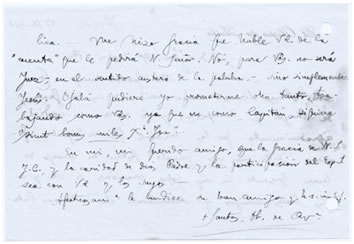 lica. Me hizo gracia que hable Vd de la
"cuenta" que le pedirá N. Señor. No, para Vd. no será
Juez - en el sentido austero de la palabra - sino simplemente
Jesús. Ojalá pudiera yo prometerme otro tanto, tra-
bajando como Vd. ya que no como Capitán, siquiera
"sicut bonus miles X.i Jesu"
En mi, mi querido amigo, que la gracia de N. S.
J.C. y la caridad de Dios Padre y la participación del Espí
sea con Vd y los suyos
le bendice su buen amigo
+ Santos, Ob. de